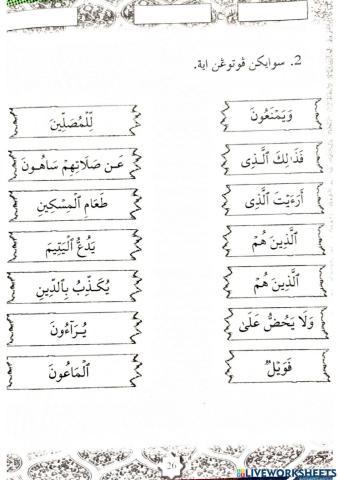 2. سوايکن ڤوتوڠن اية.
وَيَمْنَعُونَ
لِّلْمُصَلِّينَ
فَذَٰلِكَ ٱلَّذِى
عَن صَلَاتِهِمْ سَاهُونَ
أَرَءَيْتَ ٱلَّذِى
طَعَامِ ٱلْمِسْكِينِ
ٱلَّذِينَ هُمْ
يَدُعُّ ٱلْيَتِيمَ
ٱلَّذِينَ هُمْ
يُكَذِّبُ بِٱلدِّينِ
وَلَا يَحُضُّ عَلَىٰ
يُرَآءُونَ
فَوَيْلٌ
ٱلْمَاعُونَ
26
LIVEWORKSHEETS